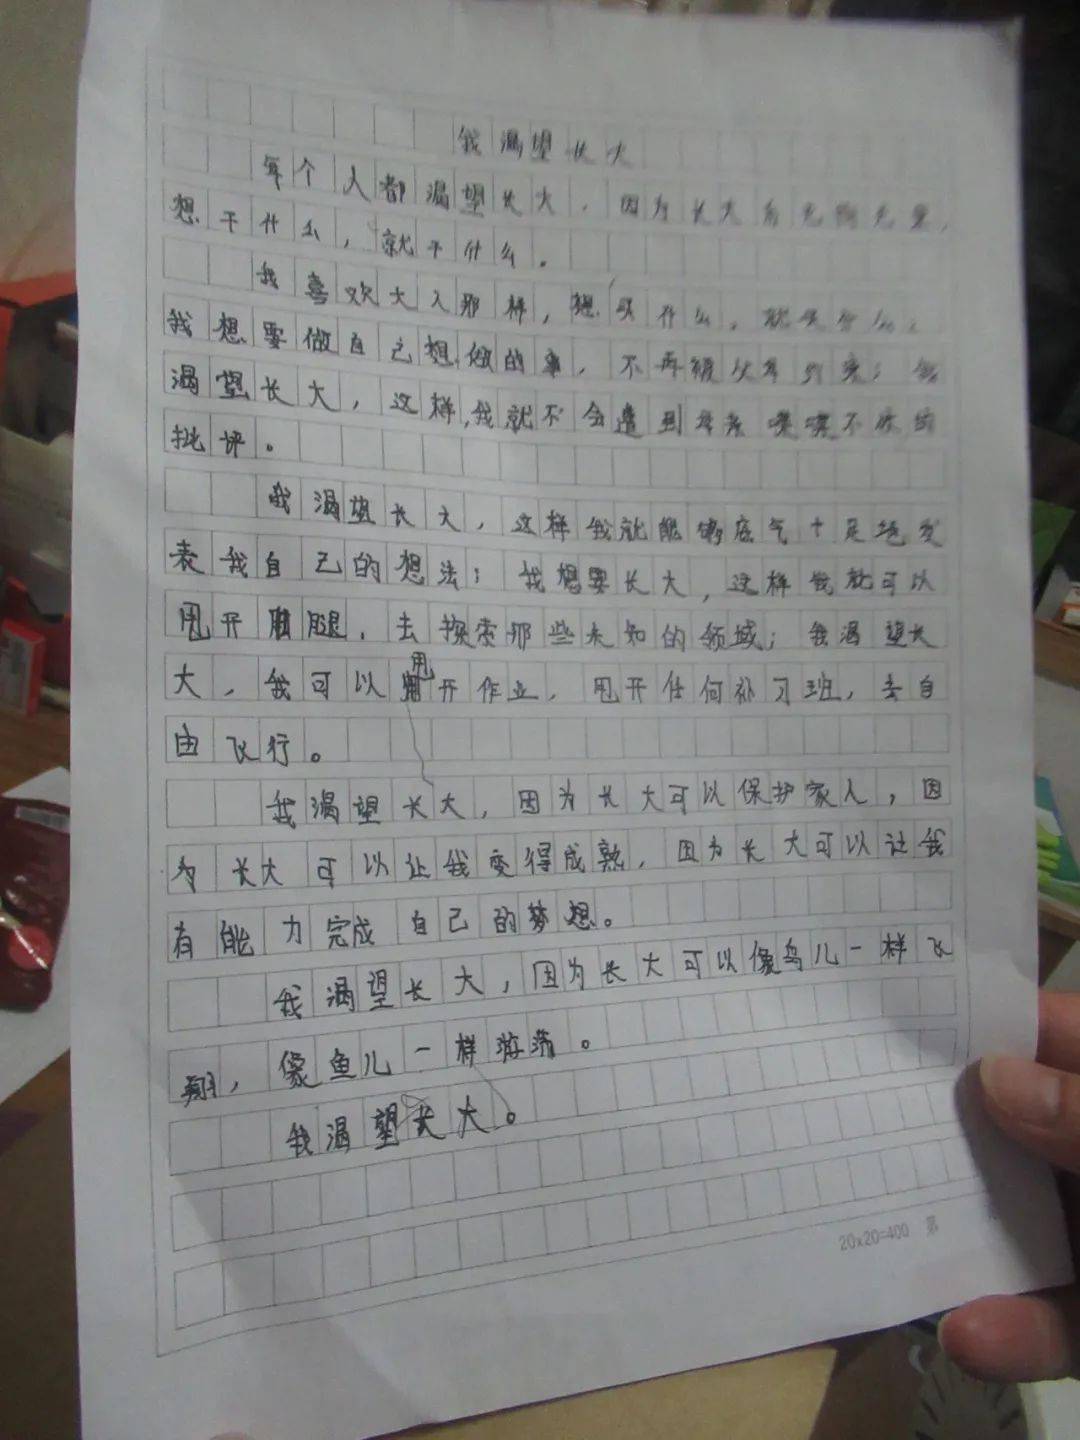 我渴望长大
每个人都渴望长大，因为长大后无拘无束，
想干什么，就干什么。
我喜欢大人那样，想买什么，就买什么；
我想要做自己想做的事，不再被父母约束；我
渴望长大，这样，我就不会遭到母亲喋喋不休的
批评。
我渴望长大，这样我就能够底气十足地发
表我自己的想法；我想要长大，这样我就可以
甩开腿，去探索那些未知的领域；我渴望长
大，我可以甩开作业，甩开任何补习班，去自
由飞行。
我渴望长大，因为长大可以保护家人，因
为长大可以让我变得成熟，因为长大可以让我
有能力完成自己的梦想。
我渴望长大，因为长大可以像鸟儿一样飞
翔，像鱼儿一样游荡。
我渴望长大。
20x20=400 第